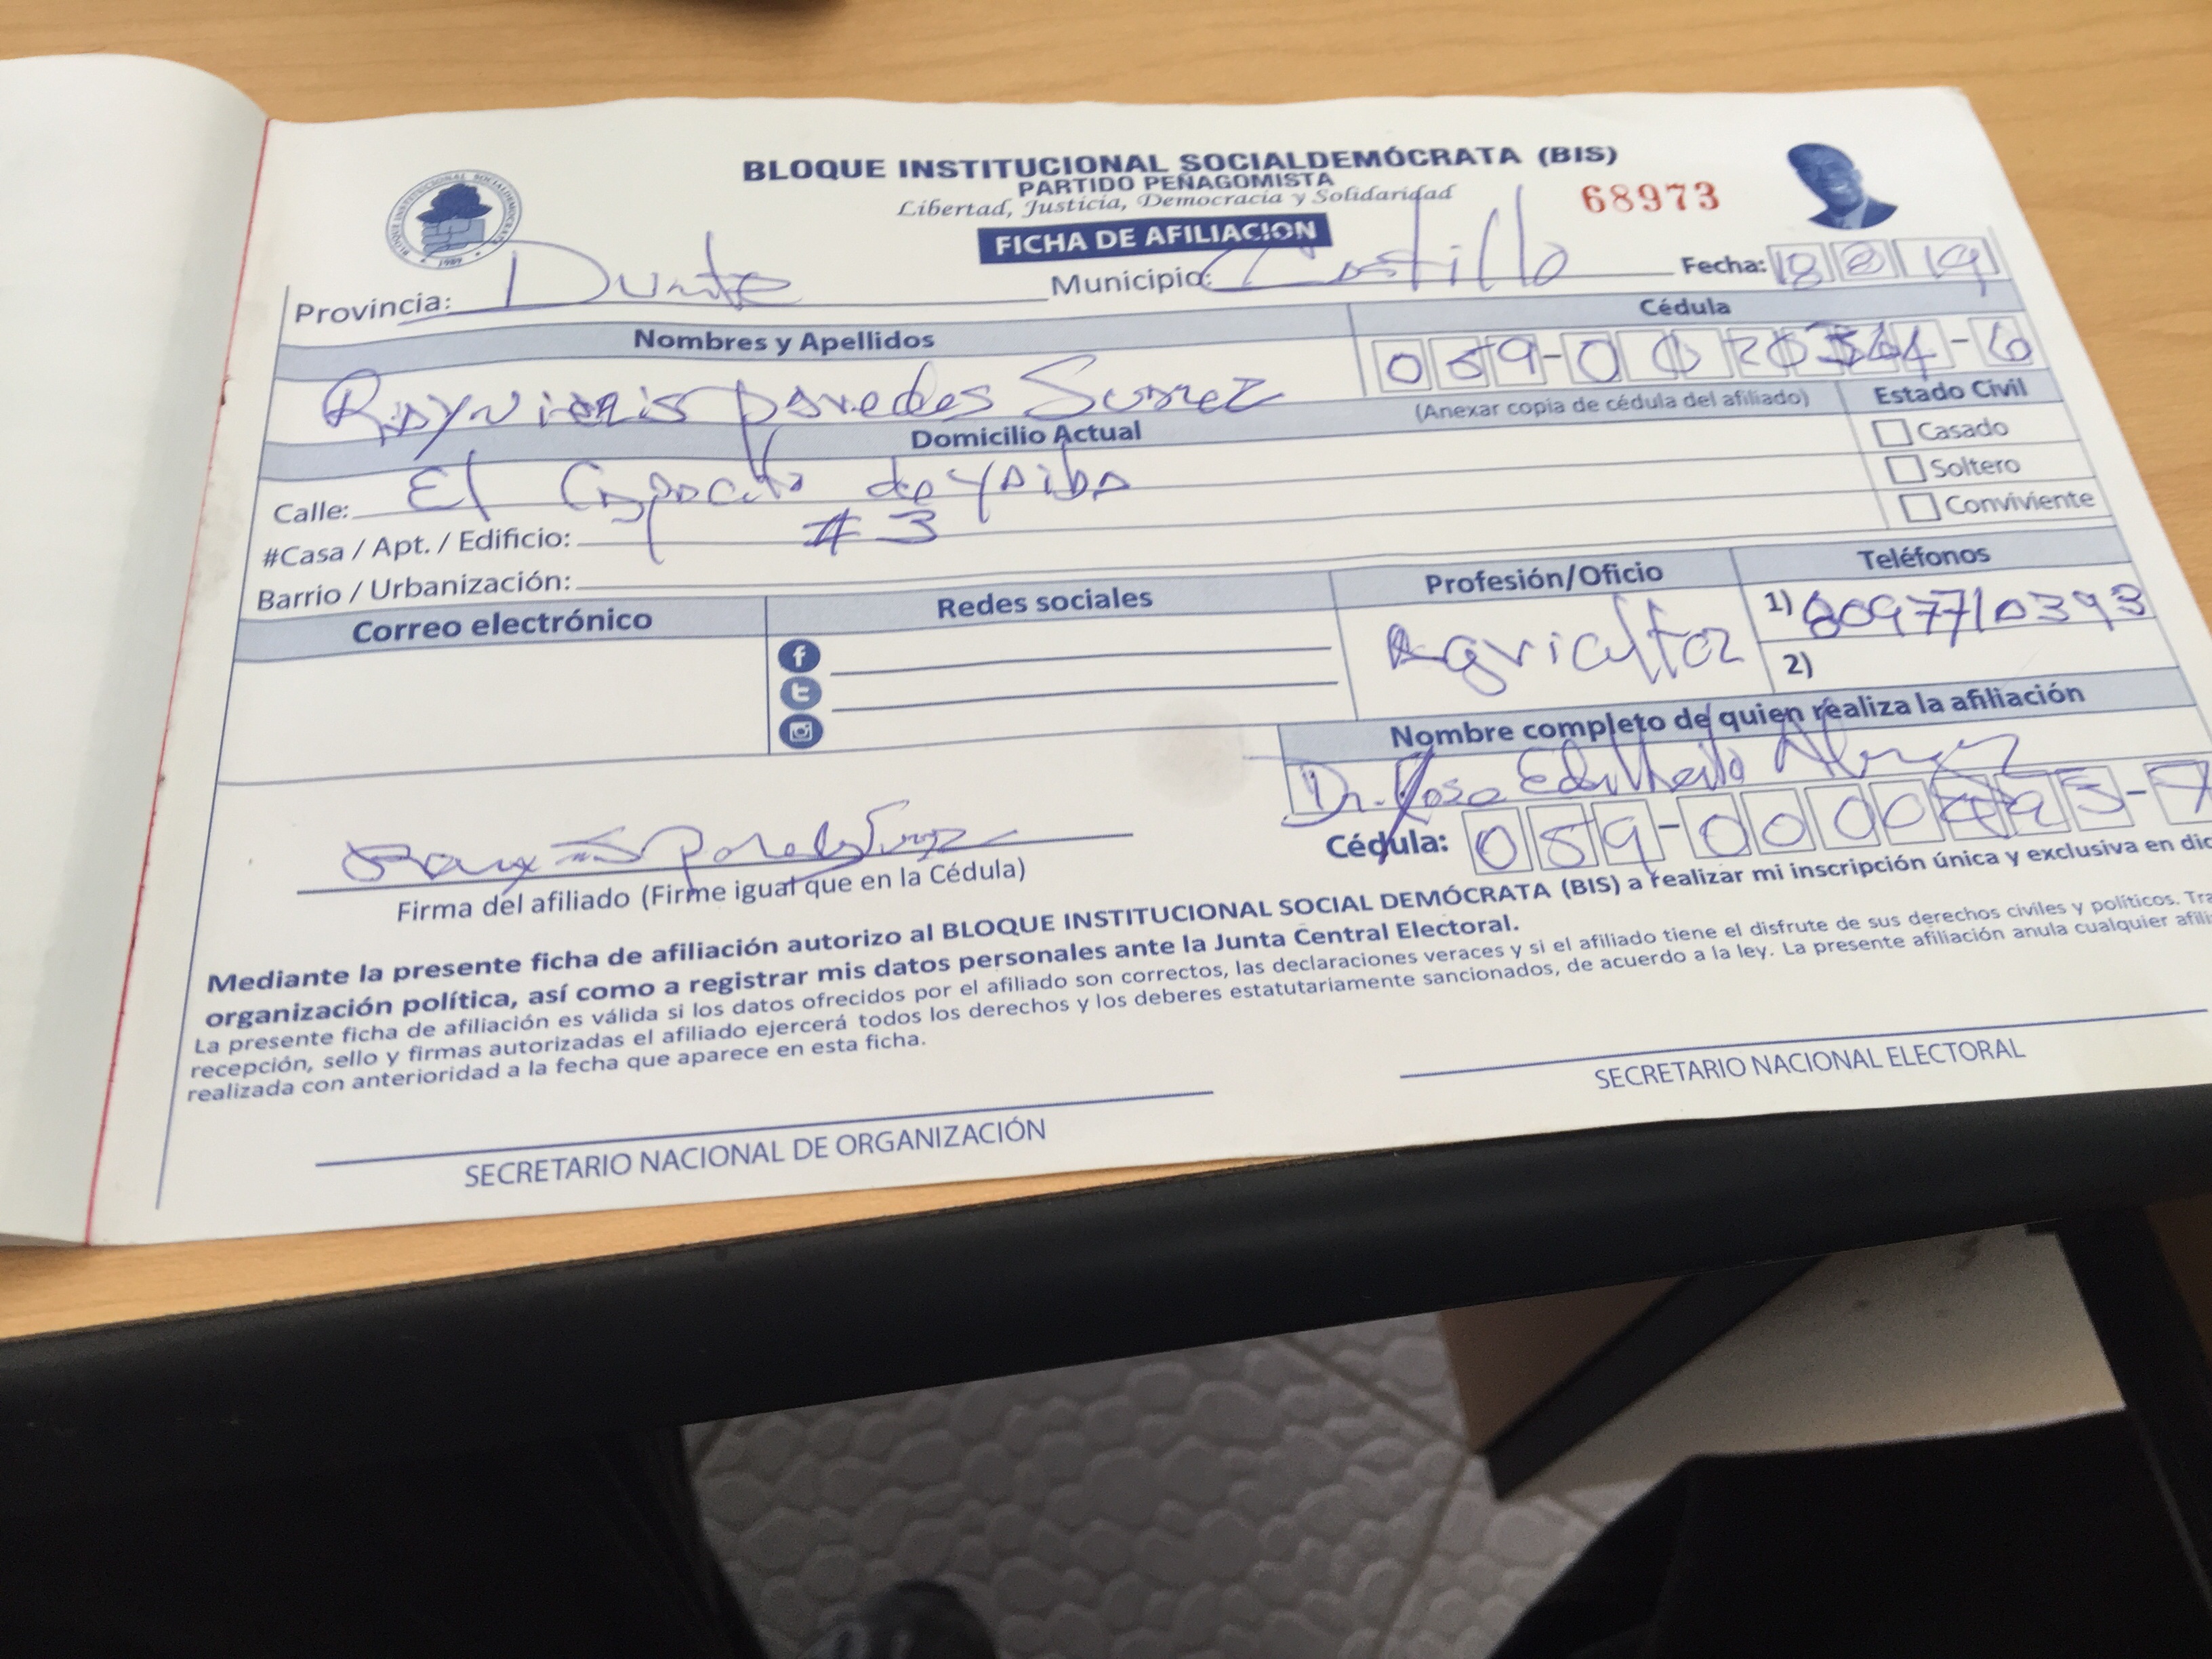 BLOQUE INSTITUCIONAL SOCIALDEMÓCRATA (BIS)
PARTIDO PEÑAGOMISTA
Libertad, Justicia, Democracia y Solidaridad
68973
FICHA DE AFILIACION
Provincia: Duarte Municipio: Castillo Fecha: 18 8 19
Nombres y Apellidos Cédula
paredes Suarez 059-0
(Anexar copia de cédula del afiliado) Estado Civil
Domicilio Actual
Casado
Soltero
Conviviente
Calle: El de yaiba
#Casa / Apt. / Edificio: #3
Barrio / Urbanización:
Correo electrónico Redes sociales Profesión/Oficio Teléfonos
Agricultor
1) 8097710393
2)
Nombre completo de quien realiza la afiliación
Dr. Jose
Cédula: 059-0000
Firma del afiliado (Firme igual que en la Cédula)
Mediante la presente ficha de afiliación autorizo al BLOQUE INSTITUCIONAL SOCIAL DEMÓCRATA (BIS) a realizar mi inscripción única y exclusiva en
organización política, así como a registrar mis datos personales ante la Junta Central Electoral.
La presente ficha de afiliación es válida si los datos ofrecidos por el afiliado son correctos, las declaraciones veraces y si el afiliado tiene el disfrute de sus derechos civiles y políticos.
recepción, sello y firmas autorizadas el afiliado ejercerá todos los derechos y los deberes estatutariamente sancionados, de acuerdo a la ley. La presente afiliación anula cualquier
realizada con anterioridad a la fecha que aparece en esta ficha.
SECRETARIO NACIONAL DE ORGANIZACIÓN SECRETARIO NACIONAL ELECTORAL